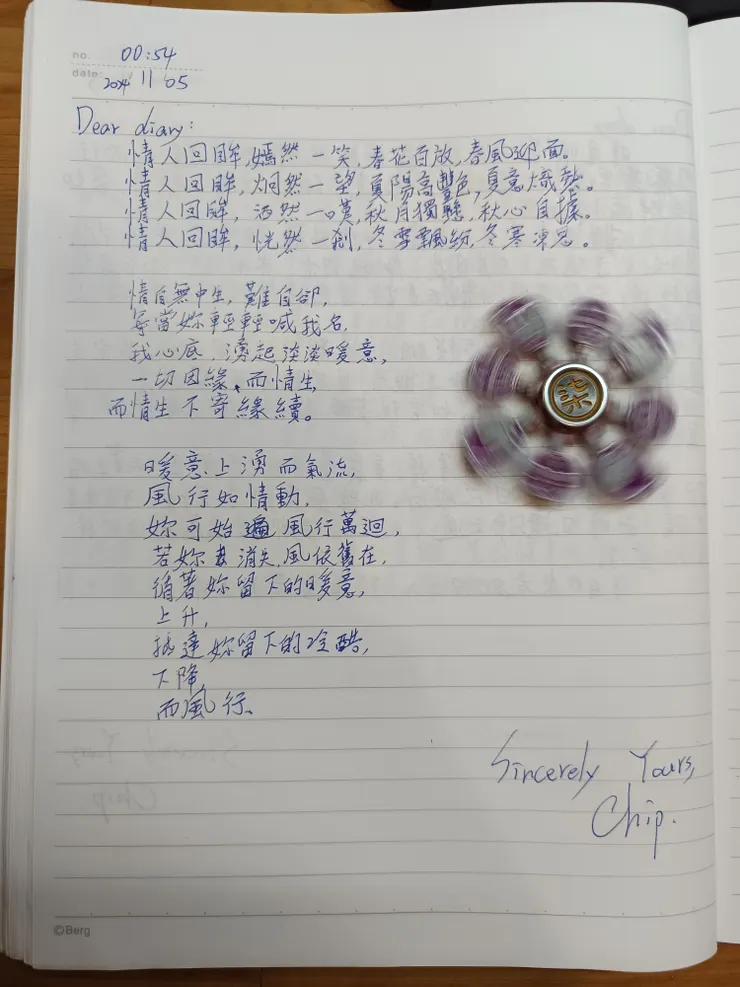 no. 00:54
date: 2024 11 05
Dear diary:
情人回眸,嫣然一笑,春花百放,春風迎面。
情人回眸,炯然一望,夏陽高豔,夏意熾熱。
情人回眸,洒然一嘆,秋月獨懸,秋心自據。
情人回眸,恍然一剎,冬雪飄紛,冬寒凍思。
情自無中生,難自卻,
每當妳輕輕喊我名,
我心底,湧起淡淡暖意,
一切因緣,而情生
而情生不寄緣續。
暖意上湧而氣流,
風行如情動,
妳可始遍風行萬迴,
若妳去消失,風依舊在,
循著妳留下的暖意,
上升,
抵達妳留下的冷酷,
下降,
而風行、
Sincerely Yours,
Chip.
©Berg